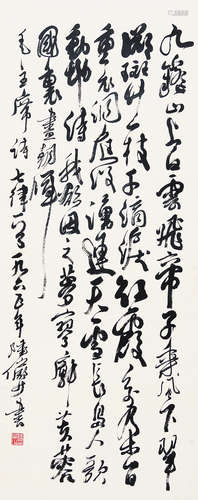 九嶷山上白雲飛帝子乘風下翠
微斑竹一枝千滴淚紅霞萬朵百
重衣洞庭波湧連天雪長島人歌
動地詩我欲因之夢寥廓芙蓉
國裏盡朝暉
毛主席詩七律一首一九六五年陸儼少書